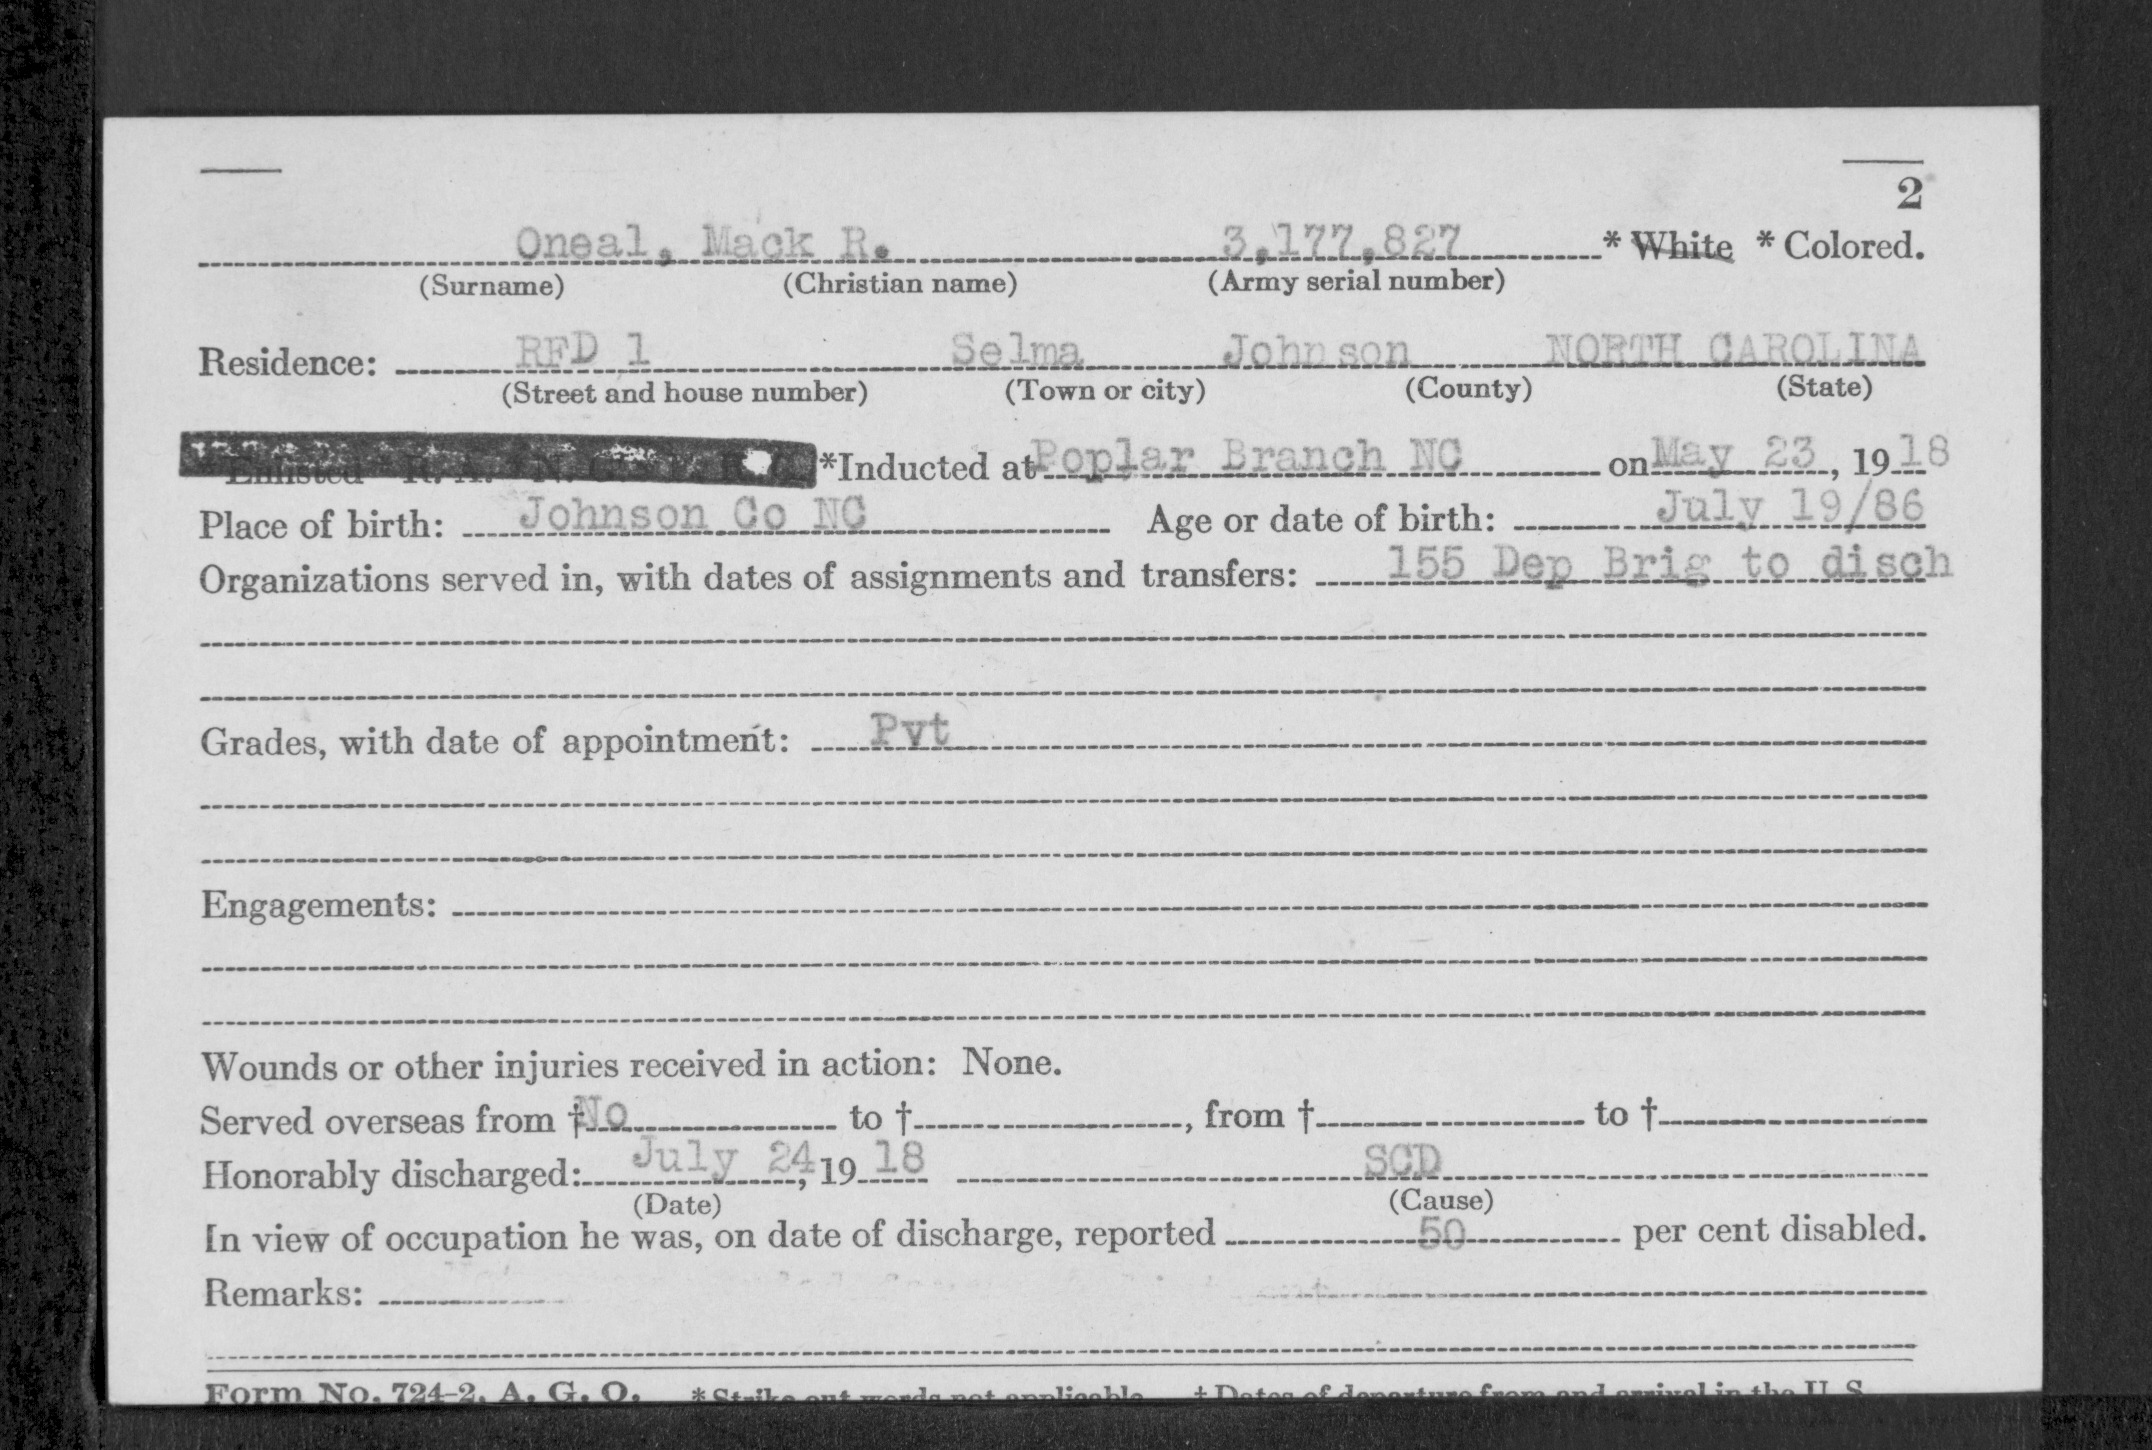 2
Oneal, Mack R. 3,177,827 * White * Colored.
(Surname) (Christian name) (Army serial number)
Residence: RFD 1 Selma Johnson NORTH CAROLINA
(Street and house number) (Town or city) (County) (State)
Enlisted R. A. N. G. *Inducted at Poplar Branch NC on May 23, 1918
Place of birth: Johnson Co NC Age or date of birth: July 19/86
Organizations served in, with dates of assignments and transfers: 155 Dep Brig to disch
Grades, with date of appointment: Pvt
Engagements:
Wounds or other injuries received in action: None.
Served overseas from † No to †, from † to †
Honorably discharged: July 24, 1918 SCD
(Date) (Cause)
In view of occupation he was, on date of discharge, reported 50 per cent disabled.
Remarks:
Form No. 724-2, A. G. O. * Strike out words not applicable † Dates of departure from and arrival in the U. S.